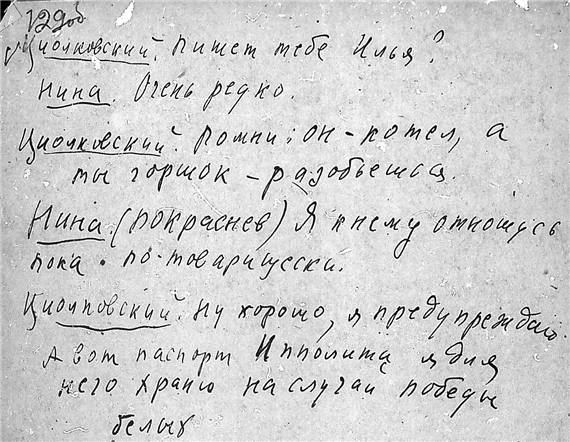 129об
Циолковский. Пишет тебе Илья?
Нина. Очень редко.
Циолковский. Помни: он – котел, а
ты горшок – разобьешься.
Нина (покраснев) Я к нему отношусь
пока по-товарищески.
Циолковский. Ну хорошо, я предупреждаю.
А вот паспорт Ипполита, я для
него храню на случай победы
белых